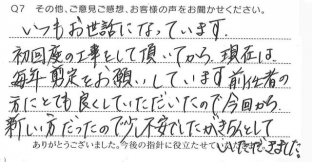 Q7 その他、ご意見ご感想、お客様の声をお聞かせください。
いつもお世話になっています。
初回庭の工事をして頂いてから、現在は
毎年剪定をお願いしています前任者の
方にとても良くしていただいたので今回から
新しい方だったので少し不安でしたがきちんとして
いただきました。
ありがとうございました。今後の指針に役立たせていただきます。